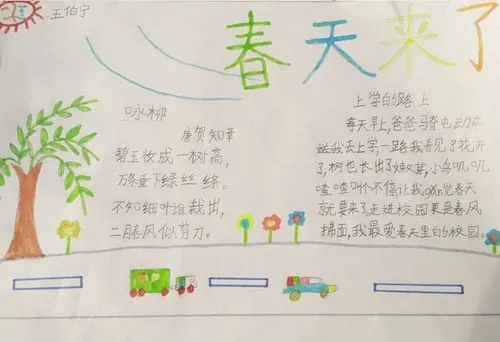 王伯宁
春天来了
咏柳
唐贺知章
碧玉妆成一树高,
万条垂下绿丝绦。
不知细叶谁裁出,
二月春风似剪刀。
上学的路上
每天早上,爸爸骑电动车
送我去上学一路我看见了花开
了,树也长出了嫩芽,小鸟叽叽
喳喳叫个不停让我感觉春天
就要来了,走进校园更是春风
拂面,我最爱春天里的校园。